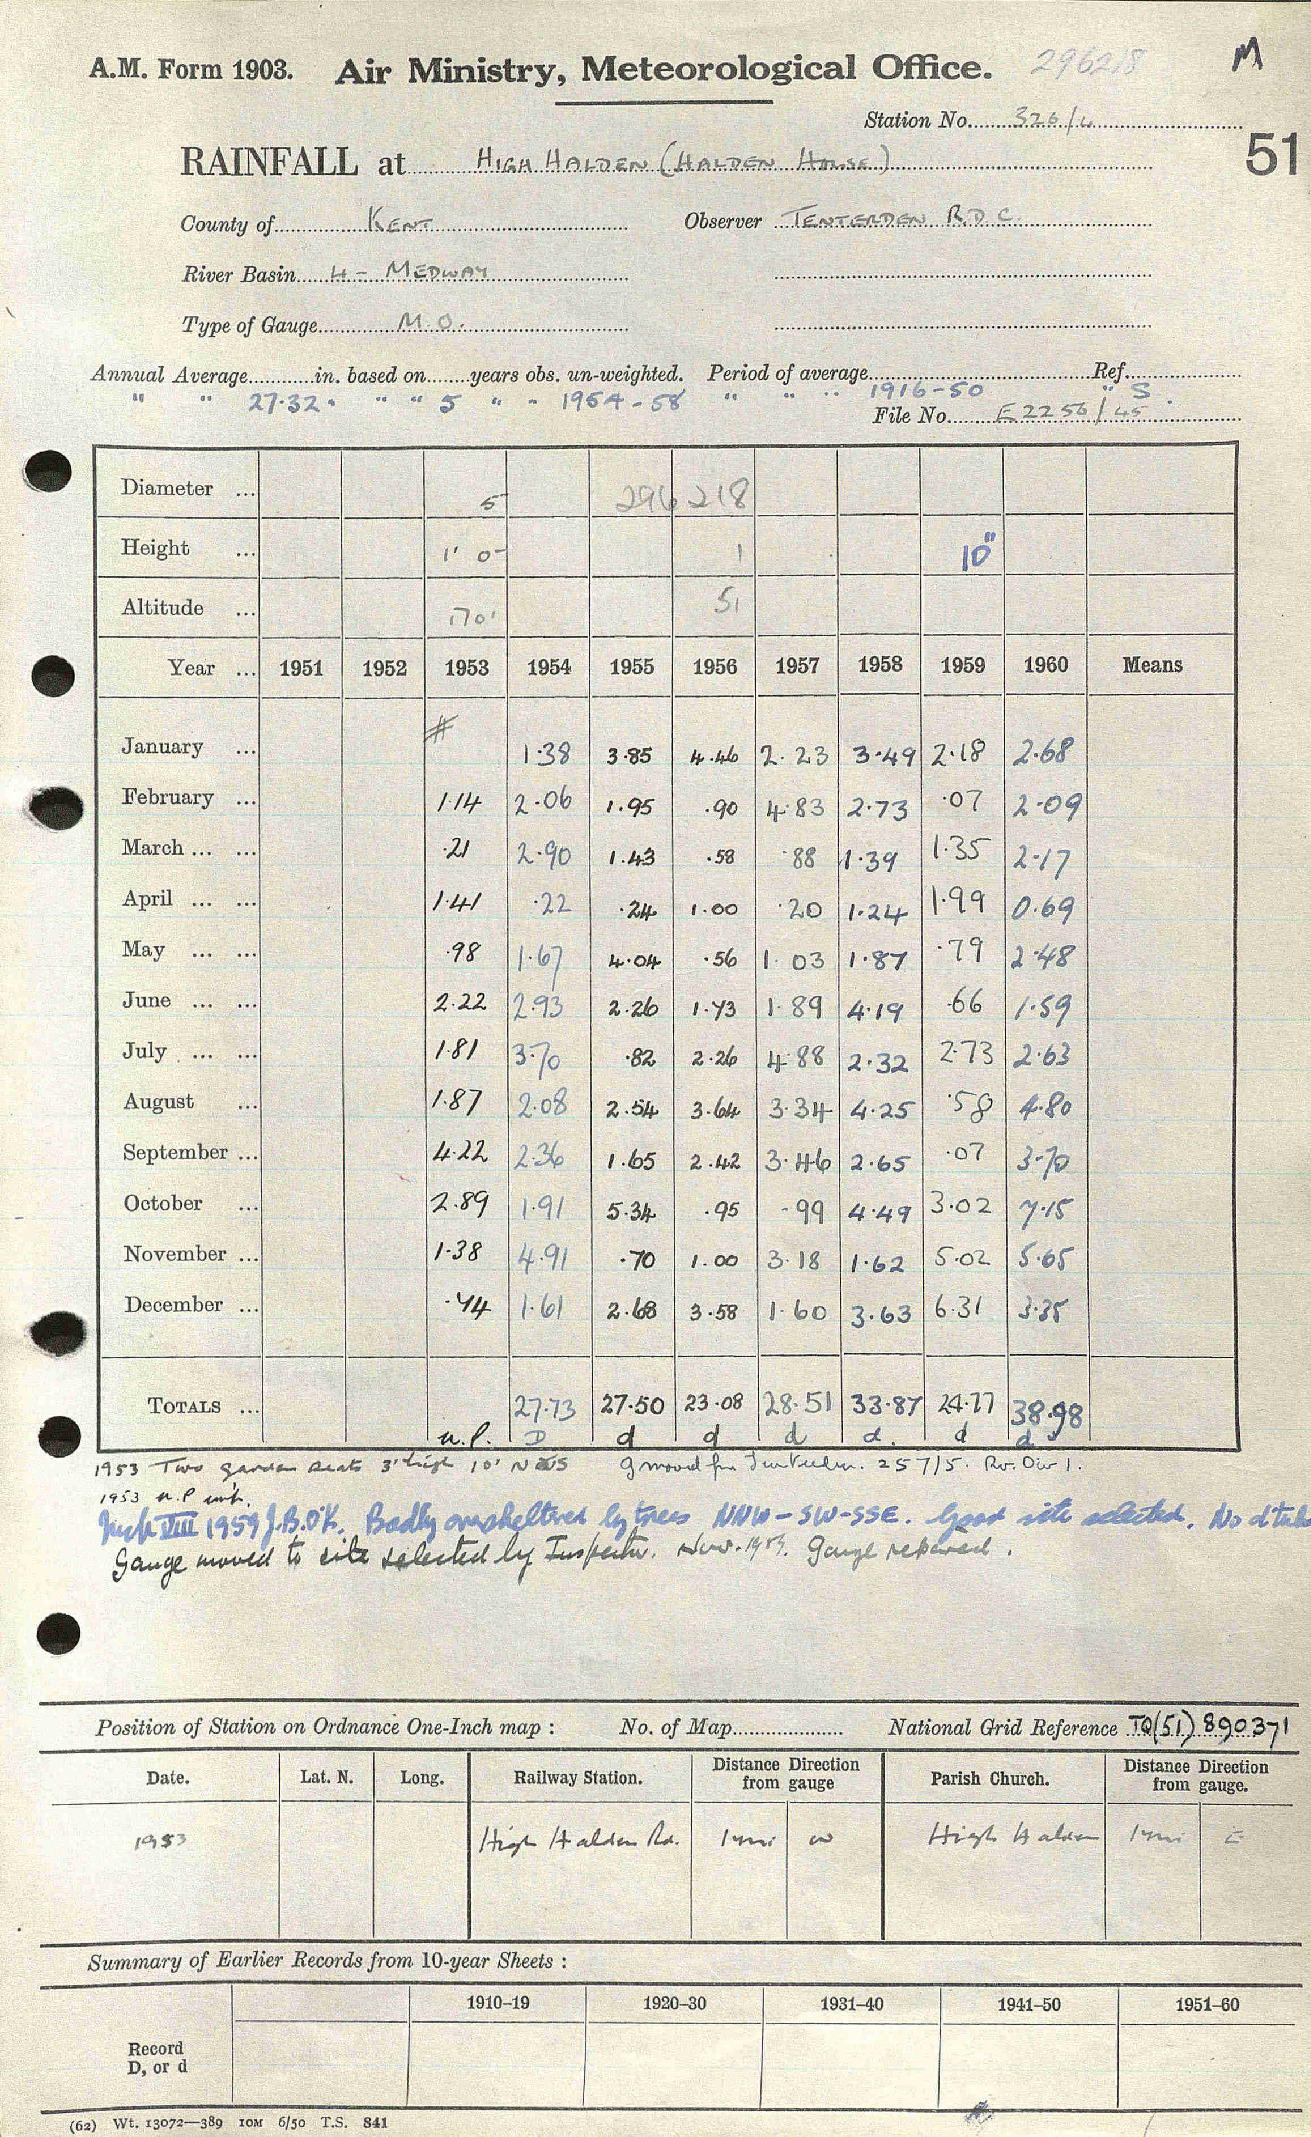 A.M. Form 1903. Air Ministry, Meteorological Office. 296218 M
Station No. 326/4
RAINFALL at HIGH HALDEN (HALDEN HOUSE) 51
County of KENT Observer TENTERDEN R.D.C.
River Basin 4 - MEDWAY
Type of Gauge M.O.
Annual Average in. based on years obs. un-weighted. Period of average Ref.
" " 27.32" " " 5 " " 1954-58 " " " 1916-50 " S.
File No. E2256/45
Diameter ... 5 296218
Height ... 1' 0" 1 10"
Altitude ... 170' 51
Year ... 1951 1952 1953 1954 1955 1956 1957 1958 1959 1960 Means
January ... # 1.38 3.85 4.46 2.23 3.49 2.18 2.68
February ... 1.14 2.06 1.95 .90 4.83 2.73 .07 2.09
March ... ... .21 2.90 1.43 .58 .88 1.39 1.35 2.17
April ... ... 1.41 .22 .24 1.00 .20 1.24 1.99 0.69
May ... ... .98 1.67 4.04 .56 1.03 1.87 .79 2.48
June ... ... 2.22 2.93 2.26 1.73 1.89 4.19 .66 1.59
July ... ... 1.81 3.70 .82 2.26 4.88 2.32 2.73 2.63
August ... 1.87 2.08 2.54 3.64 3.34 4.25 .58 4.80
September ... 4.22 2.36 1.65 2.42 3.46 2.65 .07 3.70
October ... 2.89 1.91 5.34 .95 .99 4.49 3.02 7.15
November ... 1.38 4.91 .70 1.00 3.18 1.62 5.02 5.65
December ... .74 1.61 2.68 3.58 1.60 3.63 6.31 3.35
TOTALS ... 27.73 27.50 23.08 28.51 33.87 24.77 38.98
n.p. D d d d d. d d
1953 Two garden seats 3' high 10' N & S G moved fm Tenterden. 257/5. Rv. Div 1.
1953 n.p
VIII 1959 J.B.O'K. Badly oversheltered by trees NNW-SW-SSE. Good site selected. No
Gauge moved to site selected by Inspector. Nov. 1959. Gauge repaired.
Position of Station on Ordnance One-Inch map : No. of Map National Grid Reference TQ(51) 890371
Date. Lat. N. Long. Railway Station. Distance Direction from gauge Parish Church. Distance Direction from gauge.
1953 High Halden Rd. 1 mi W High Halden 1 mi E
Summary of Earlier Records from 10-year Sheets :
1910–19 1920–30 1931–40 1941–50 1951–60
Record
D, or d
(62) Wt. 13072—389 10M 6/50 T.S. 841